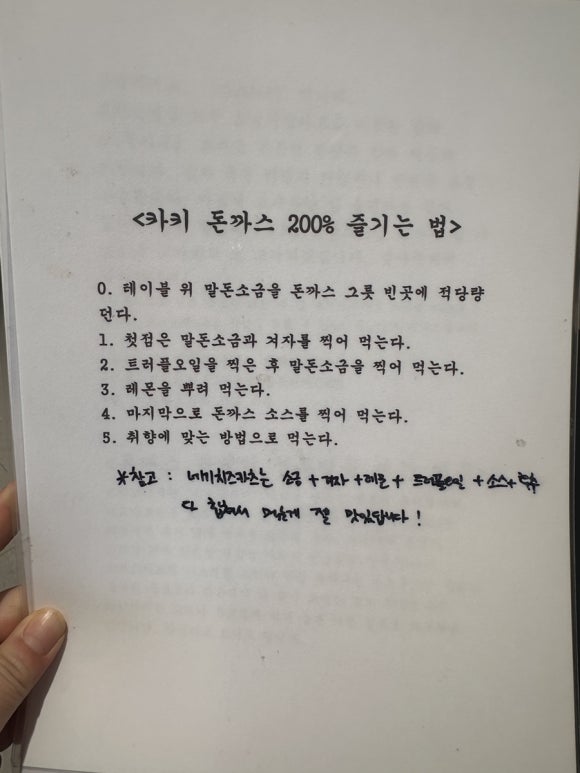 <카키 돈까스 200% 즐기는 법>
0. 테이블 위 말돈소금을 돈까스 그릇 빈곳에 적당량
던다.
1. 첫점은 말돈소금과 겨자를 찍어 먹는다.
2. 트러플오일을 찍은 후 말돈소금을 찍어 먹는다.
3. 레몬을 뿌려 먹는다.
4. 마지막으로 돈까스 소스를 찍어 먹는다.
5. 취향에 맞는 방법으로 먹는다.
※참고 : 네기치즈카츠는 소금 + 겨자 + 레몬 + 트러플오일 + 소스 +
다 합쳐서 먹는게 젤 맛있답니다!